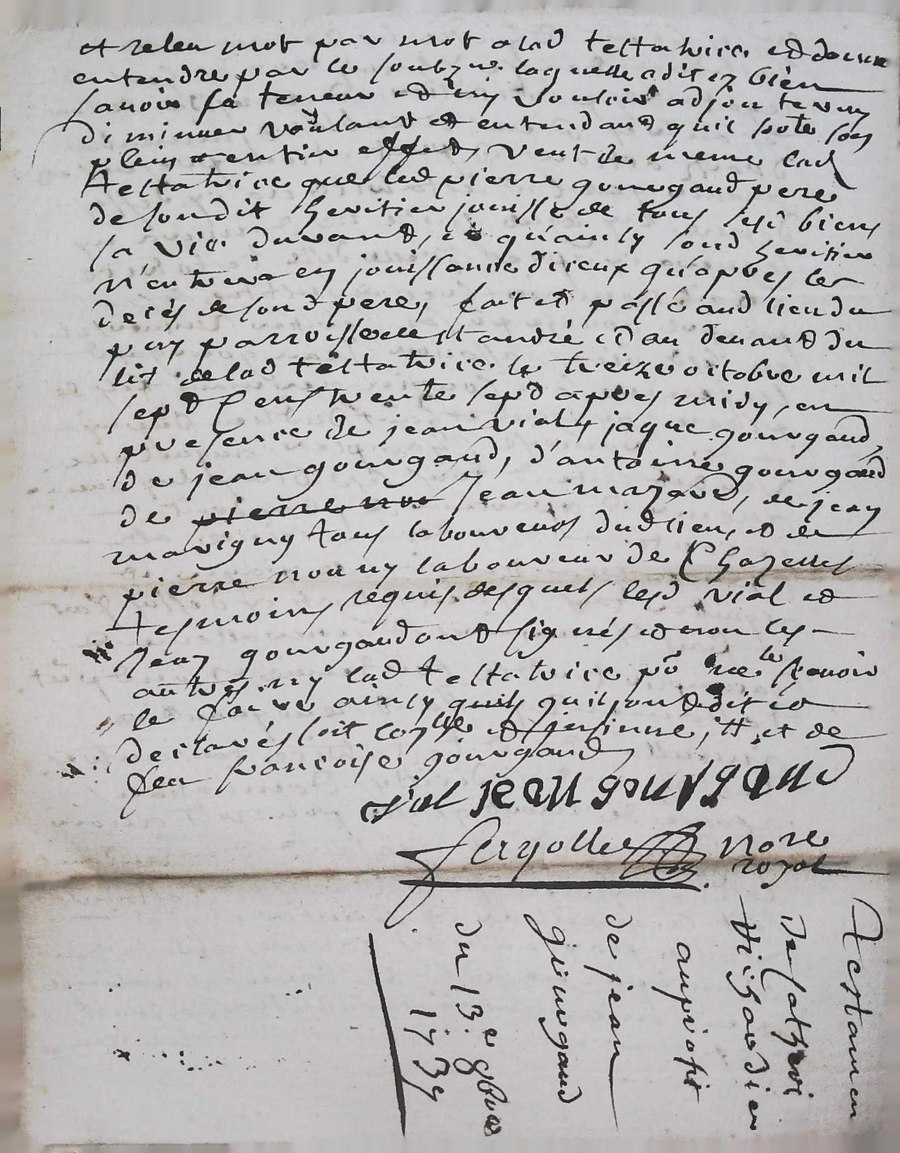 et releu mot par mot a lad testatrice et donné
entendre par le soubzne laquelle a dit ez bien
scavoir sa teneur et ny vouloir adjouter ny
diminuer voulant et entendant quil sorte son
plein et entier effect, veut de meme lad
testatrice que led pierre gourgaud pere
de sondit heritier jouisse de tous ses biens
sa vie durant, et qu'ainsy sond heritier
n'entrera en jouissance diceux qu'apres le
decés de sond pere, fait et passé aud lieu du
puy parroisse de st andré et au devand du
lit de lad testatrice le treize octobre mil
sept cens trente sept apres midy, en
presence de jean vial, jaque gourgaud,
de jean gourgaud, d'antoine gourgaud
de pierre nou jean mazard, de jean
marigny tous laboureurs dud lieu, et de
pierre nouny laboureur de Chazelles
tesmoins requis desquels lesd vial et
jean gourgaud ont signés et non les
autres ny lad testatrice po ne le scavoir
le faire ainsy quils quils ont dit et
declarés soit et de
feu françoise gourgaud
vial jean gourgaud
nore
royal
Testamen
de
au profit
de jean
gourgaud
du 13.e 8bre
1737